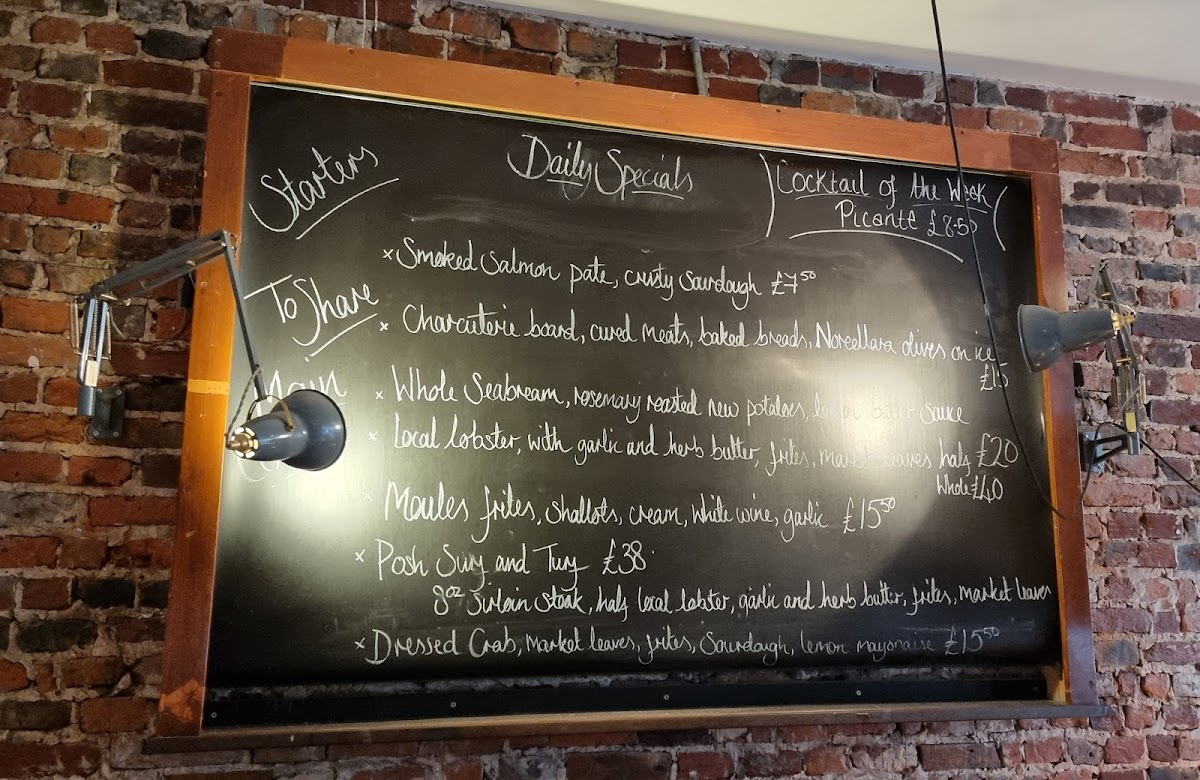 Starters
Daily Specials
Cocktail of the Week
Picante £8.50
× Smoked Salmon pate, crusty Sourdough £7.50
To Share
× Charcuterie board, cured meats, baked breads, Nocellara olives on ice
£15
Main
× Whole Seabream, rosemary roasted new potatoes, butter Sauce
× Local lobster, with garlic and herb butter, frites, market leaves half £20
Whole £40
× Moules frites, Shallots, cream, White wine, garlic £15.50
× Posh Surf and Turf £38
8oz Sirloin Steak, half local lobster, garlic and herb butter, frites, market leaves
× Dressed Crab, market leaves, frites, Sourdough, lemon mayonaise £15.50